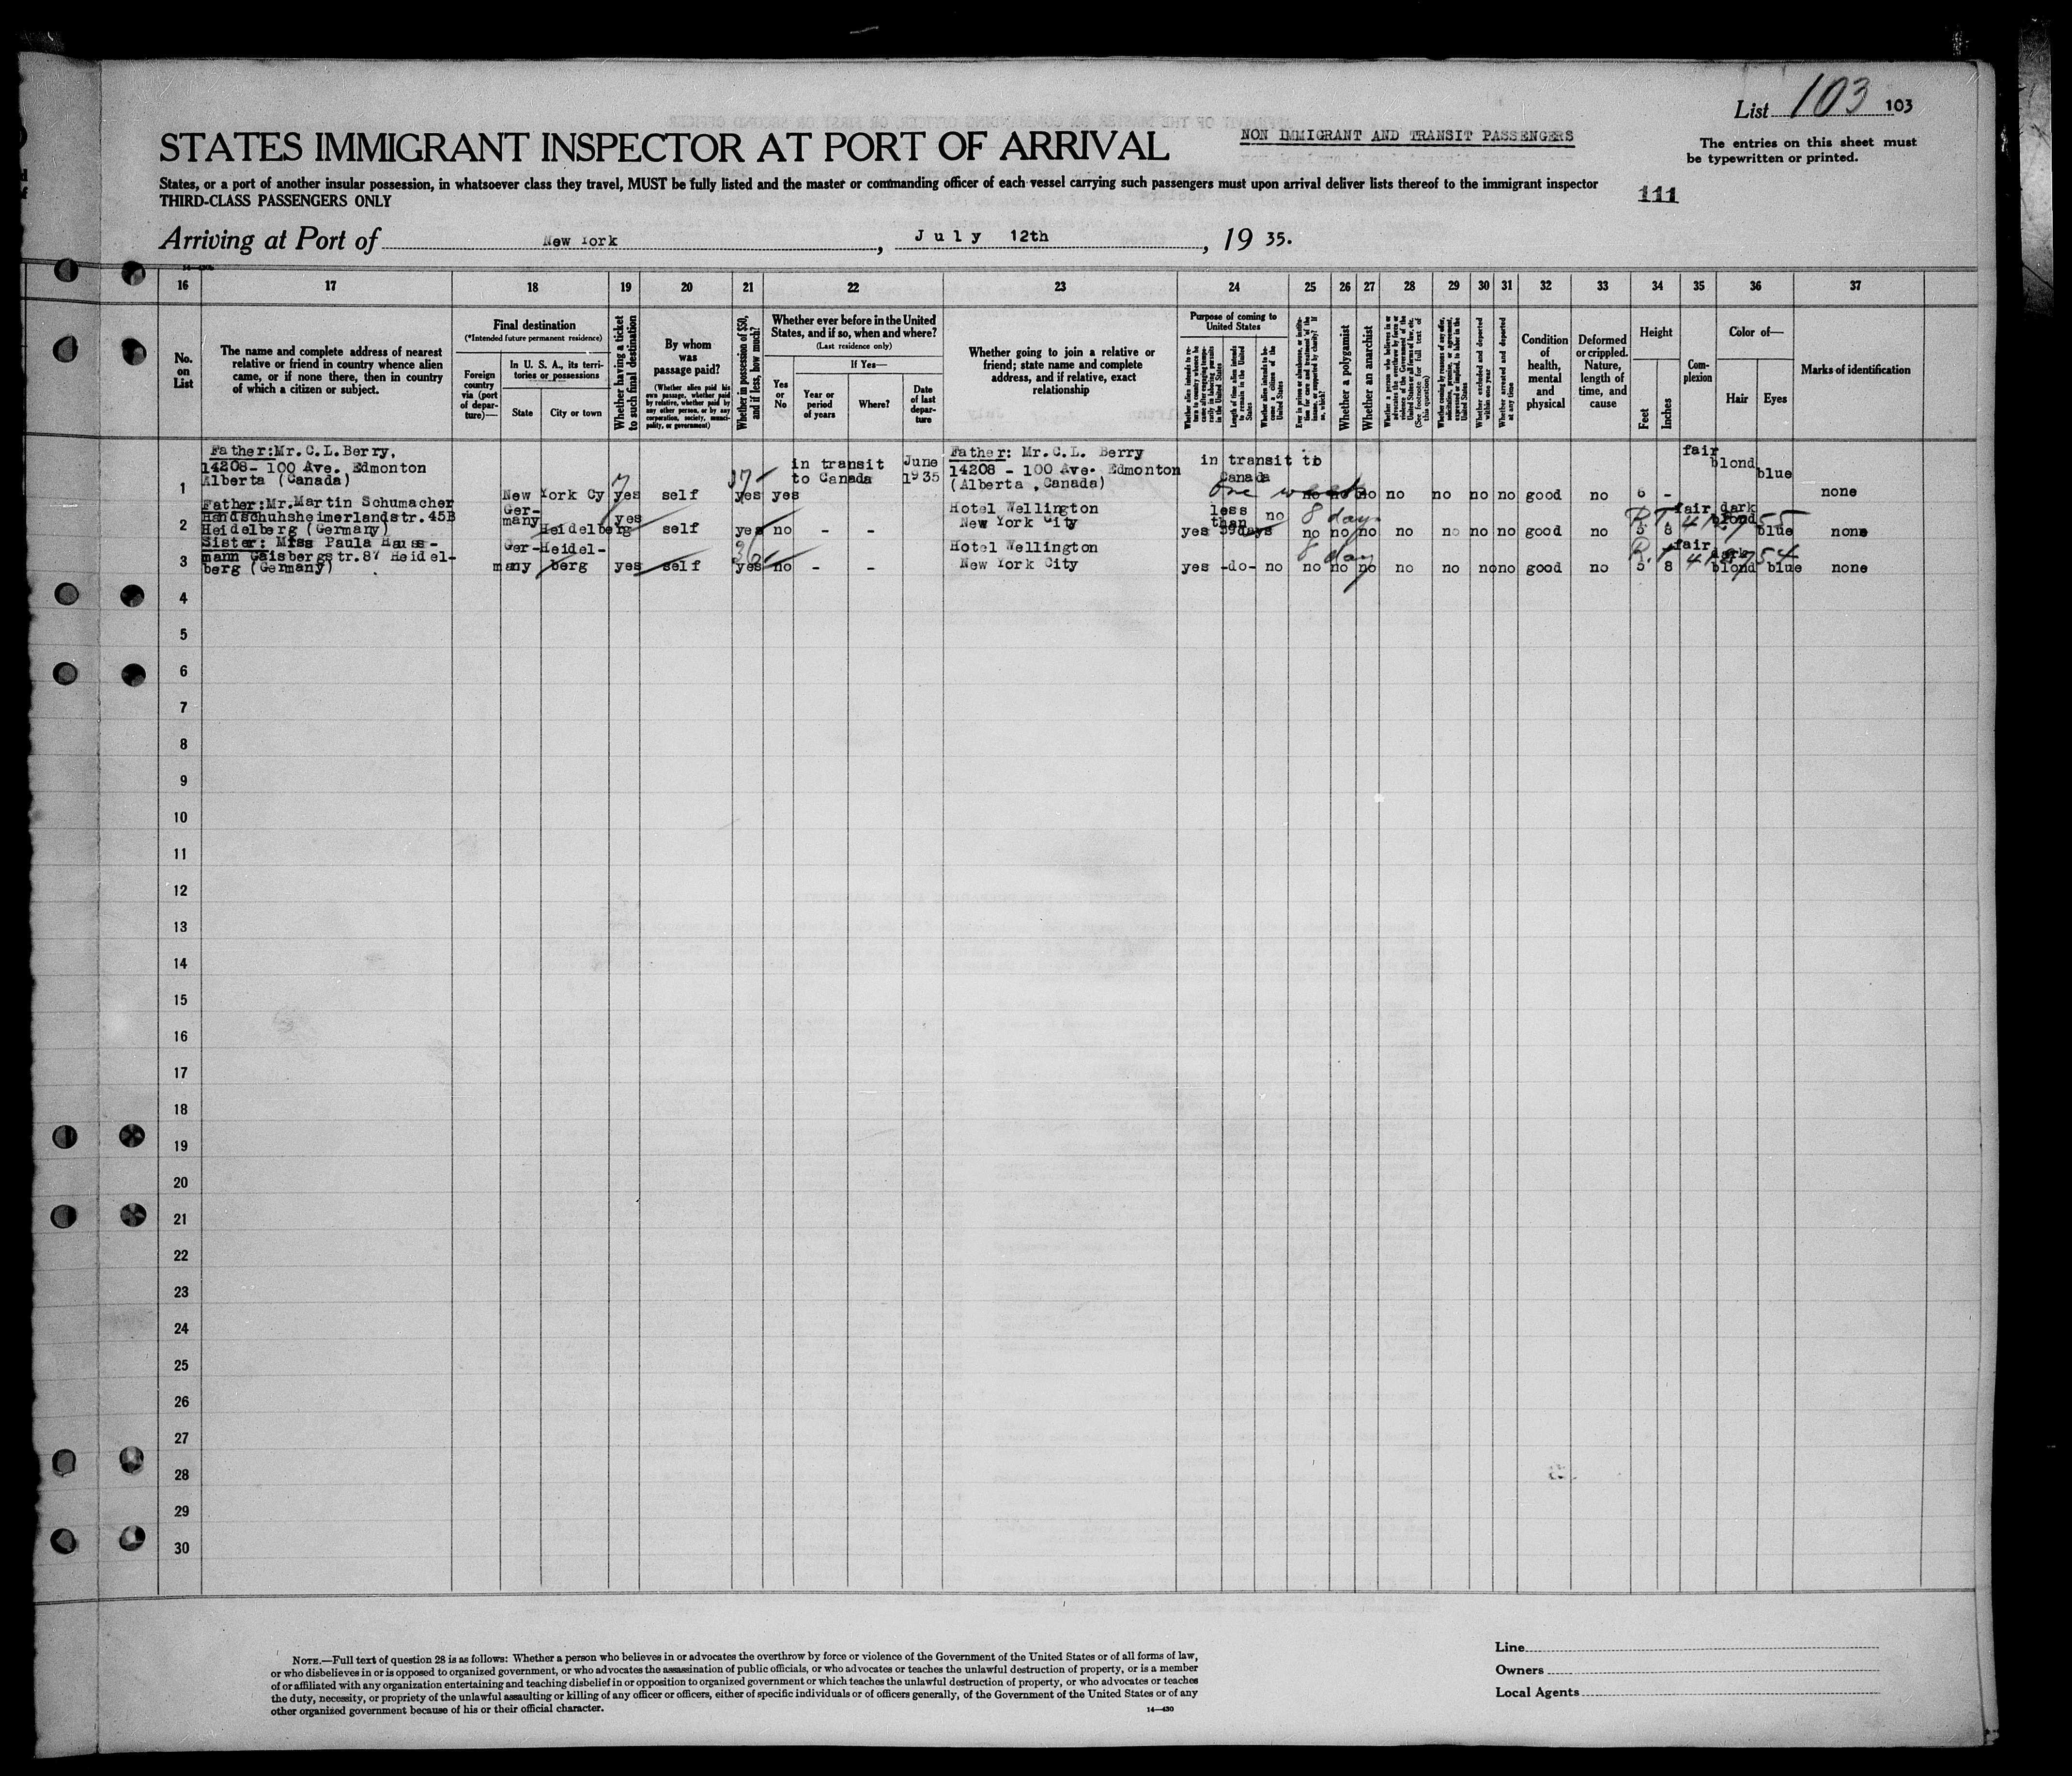 List 103 103
STATES IMMIGRANT INSPECTOR AT PORT OF ARRIVAL
NON IMMIGRANT AND TRANSIT PASSENGERS
The entries on this sheet must
be typewritten or printed.
States, or a port of another insular possession, in whatsoever class they travel, MUST be fully listed and the master or commanding officer of each vessel carrying such passengers must upon arrival deliver lists thereof to the immigrant inspector
THIRD-CLASS PASSENGERS ONLY
111
Arriving at Port of New York, July 12th, 19 35.
16 17 18 19 20 21 22 23 24 25 26 27 28 29 30 31 32 33 34 35 36 37
No.
on
List
The name and complete address of nearest
relative or friend in country whence alien
came, or if none there, then in country
of which a citizen or subject.
Final destination
(*Intended future permanent residence)
Foreign
country
via (port
of depar-
ture)—
In U. S. A., its terri-
tories or possessions
State
City or town
Whether having a ticket
to such final destination
By whom
was
passage paid?
(Whether alien paid his
own passage, whether paid
by relative, whether paid by
any other person, or by any
corporation, society, munici-
pality, or government)
Whether in possession of $50,
and if less, how much?
Whether ever before in the United
States, and if so, when and where?
(Last residence only)
Yes
or
No
If Yes—
Year or
period
of years
Where?
Date
of last
depar-
ture
Whether going to join a relative or
friend; state name and complete
address, and if relative, exact
relationship
Purpose of coming to
United States
Length of time alien intends
to remain in the United
States
Whether alien intends to be-
come a citizen of the
United States
Whether a polygamist
Whether an anarchist
(See footnote for full text of
this question)
Whether excluded and deported
within one year
Whether arrested and deported
at any time
Condition
of
health,
mental
and
physical
Deformed
or crippled.
Nature,
length of
time, and
cause
Height
Feet
Inches
Com-
plexion
Color of—
Hair
Eyes
Marks of identification
Father: Mr. C. L. Berry,
14208 - 100 Ave. Edmonton
Alberta (Canada)
1 New York Cy yes self yes yes
in transit
to Canada
June
1935
Father: Mr. C. L. Berry
14208 - 100 Ave. Edmonton
(Alberta, Canada)
in transit to
Canada
One week
no no no no no no no good no 6 - fair blond blue none
Father: Mr. Martin Schumacher
Handschuhsheimerlandstr. 45B
Heidelberg (Germany)
2 Ger-
many Heidelberg yes self yes no - -
Hotel Wellington
New York City
yes less
than
59days no 8 days no no no no no no no good no 5 8 fair dark
blond blue none
Sister: Miss Paula Hauss-
mann Gaisbergstr. 87 Heidel-
berg (Germany)
3 Ger-
many Heidel-
berg yes self 36 yes no - -
Hotel Wellington
New York City
yes -do- no 8 day no no no no no no no good no 5 8 fair dark
blond blue none
4
5
6
7
8
9
10
11
12
13
14
15
16
17
18
19
20
21
22
23
24
25
26
27
28
29
30
NOTE.—Full text of question 28 is as follows: Whether a person who believes in or advocates the overthrow by force or violence of the Government of the United States or of all forms of law,
or who disbelieves in or is opposed to organized government, or who advocates the assassination of public officials, or who advocates or teaches the unlawful destruction of property, or is a member
of or affiliated with any organization entertaining and teaching disbelief in or opposition to organized government or which teaches the unlawful destruction of property, or who advocates or teaches
the duty, necessity, or propriety of the unlawful assaulting or killing of any officer or officers, either of specific individuals or of officers generally, of the Government of the United States or of any
other organized government because of his or their official character.
14—430
Line
Owners
Local Agents